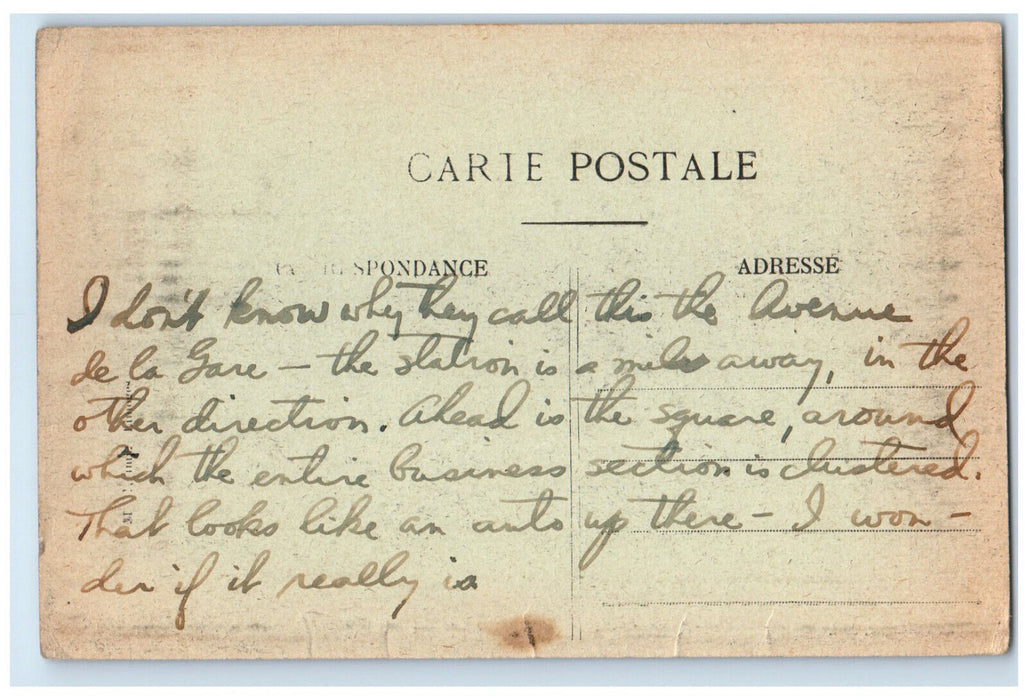 CARTE POSTALE
CORRESPONDANCE
ADRESSE
I don't know why they call this the Avenue
de la Gare — the station is a mile away, in the
other direction. Ahead is the square, around
which the entire business section is clustered.
That looks like an auto up there — I won-
der if it really is